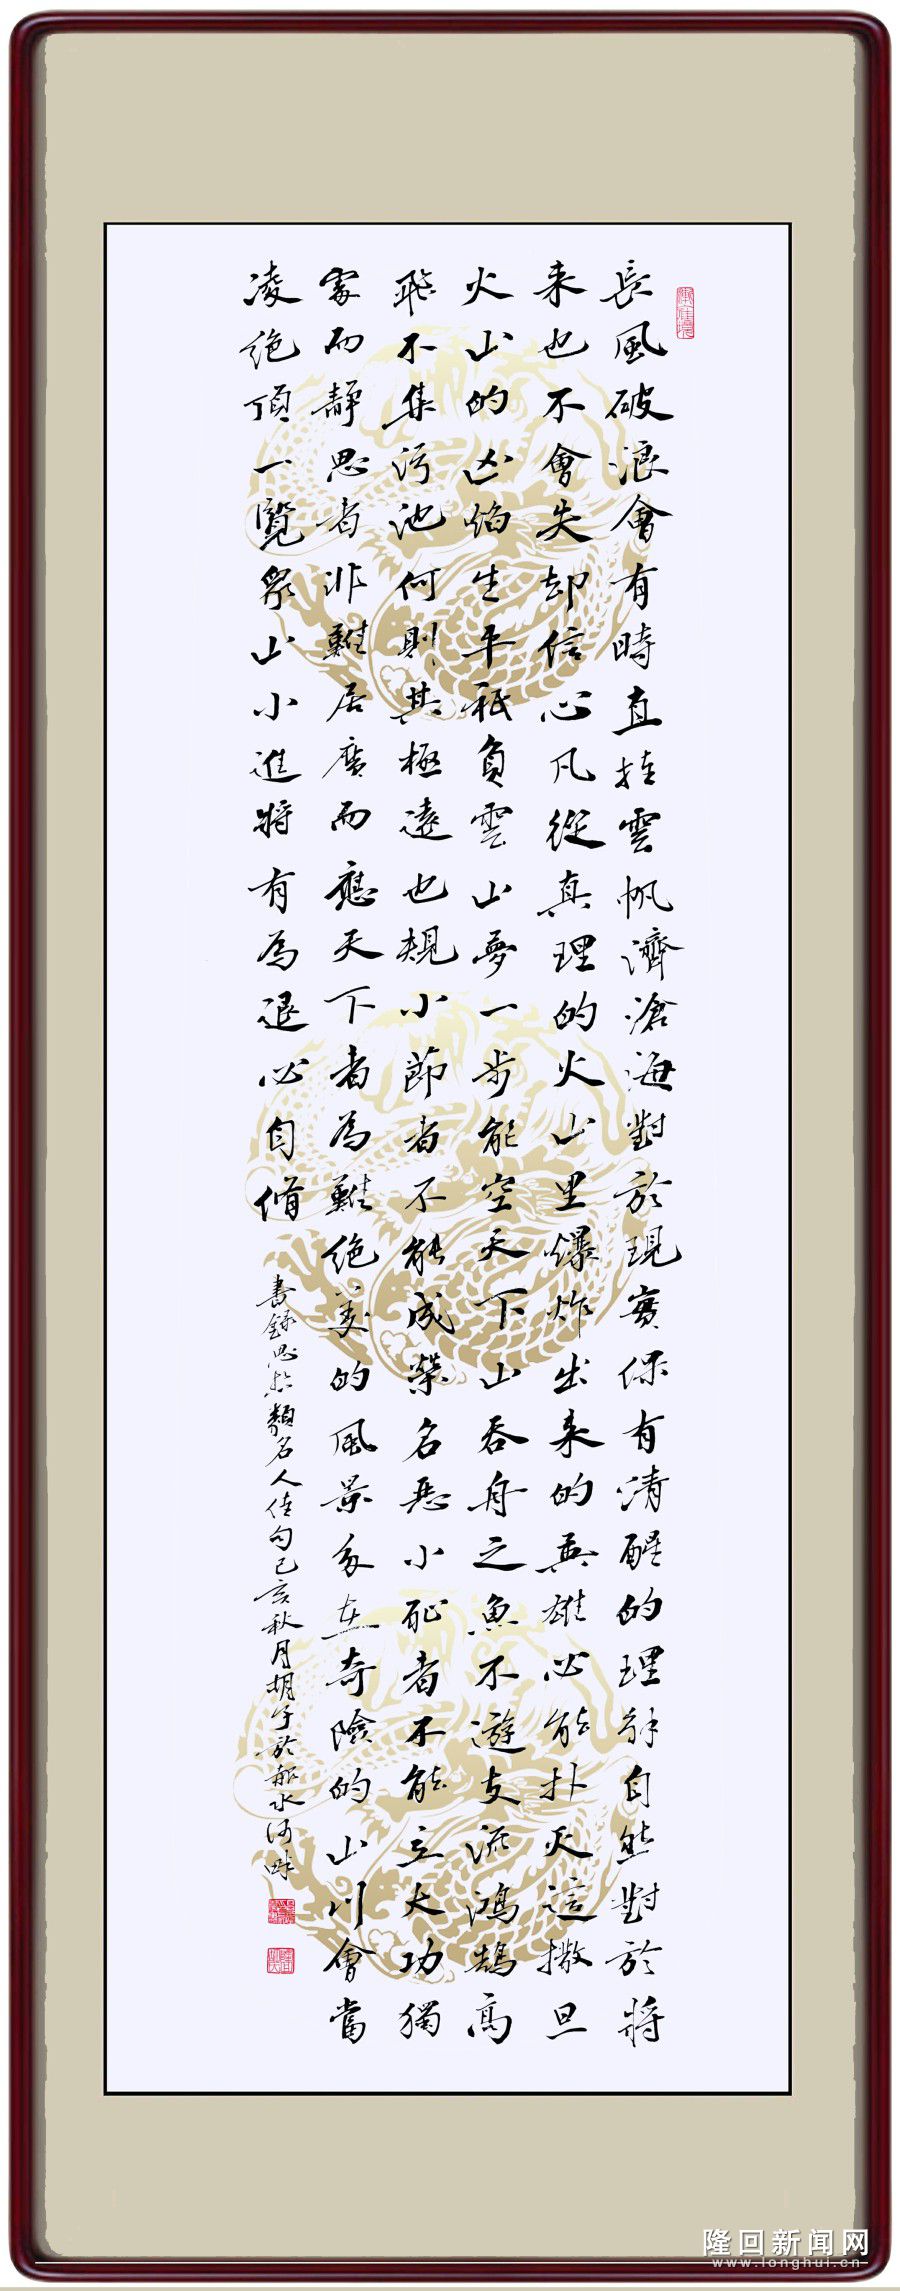 長風破浪會有時直挂雲帆濟滄海對於現實保有清醒的理解自然對於將
来也不會失却信心凡從真理的火山里爆炸出来的英雄必能扑灭這撒旦
火山的凶焰生平秖負雲山夢一步能空天下山吞舟之魚不遊支流鴻鵠高
飛不集污池何則其極遠也規小節者不能成榮名惡小恥者不能立大功獨
處而静思者非難居廣而應天下者為難绝美的風景多在奇險的山川會當
凌绝頂一覽衆山小進將有為退必自脩
書録思於類名人佳句己亥秋月胡子於水河畔
隆回新闻网
www.longhui.cn